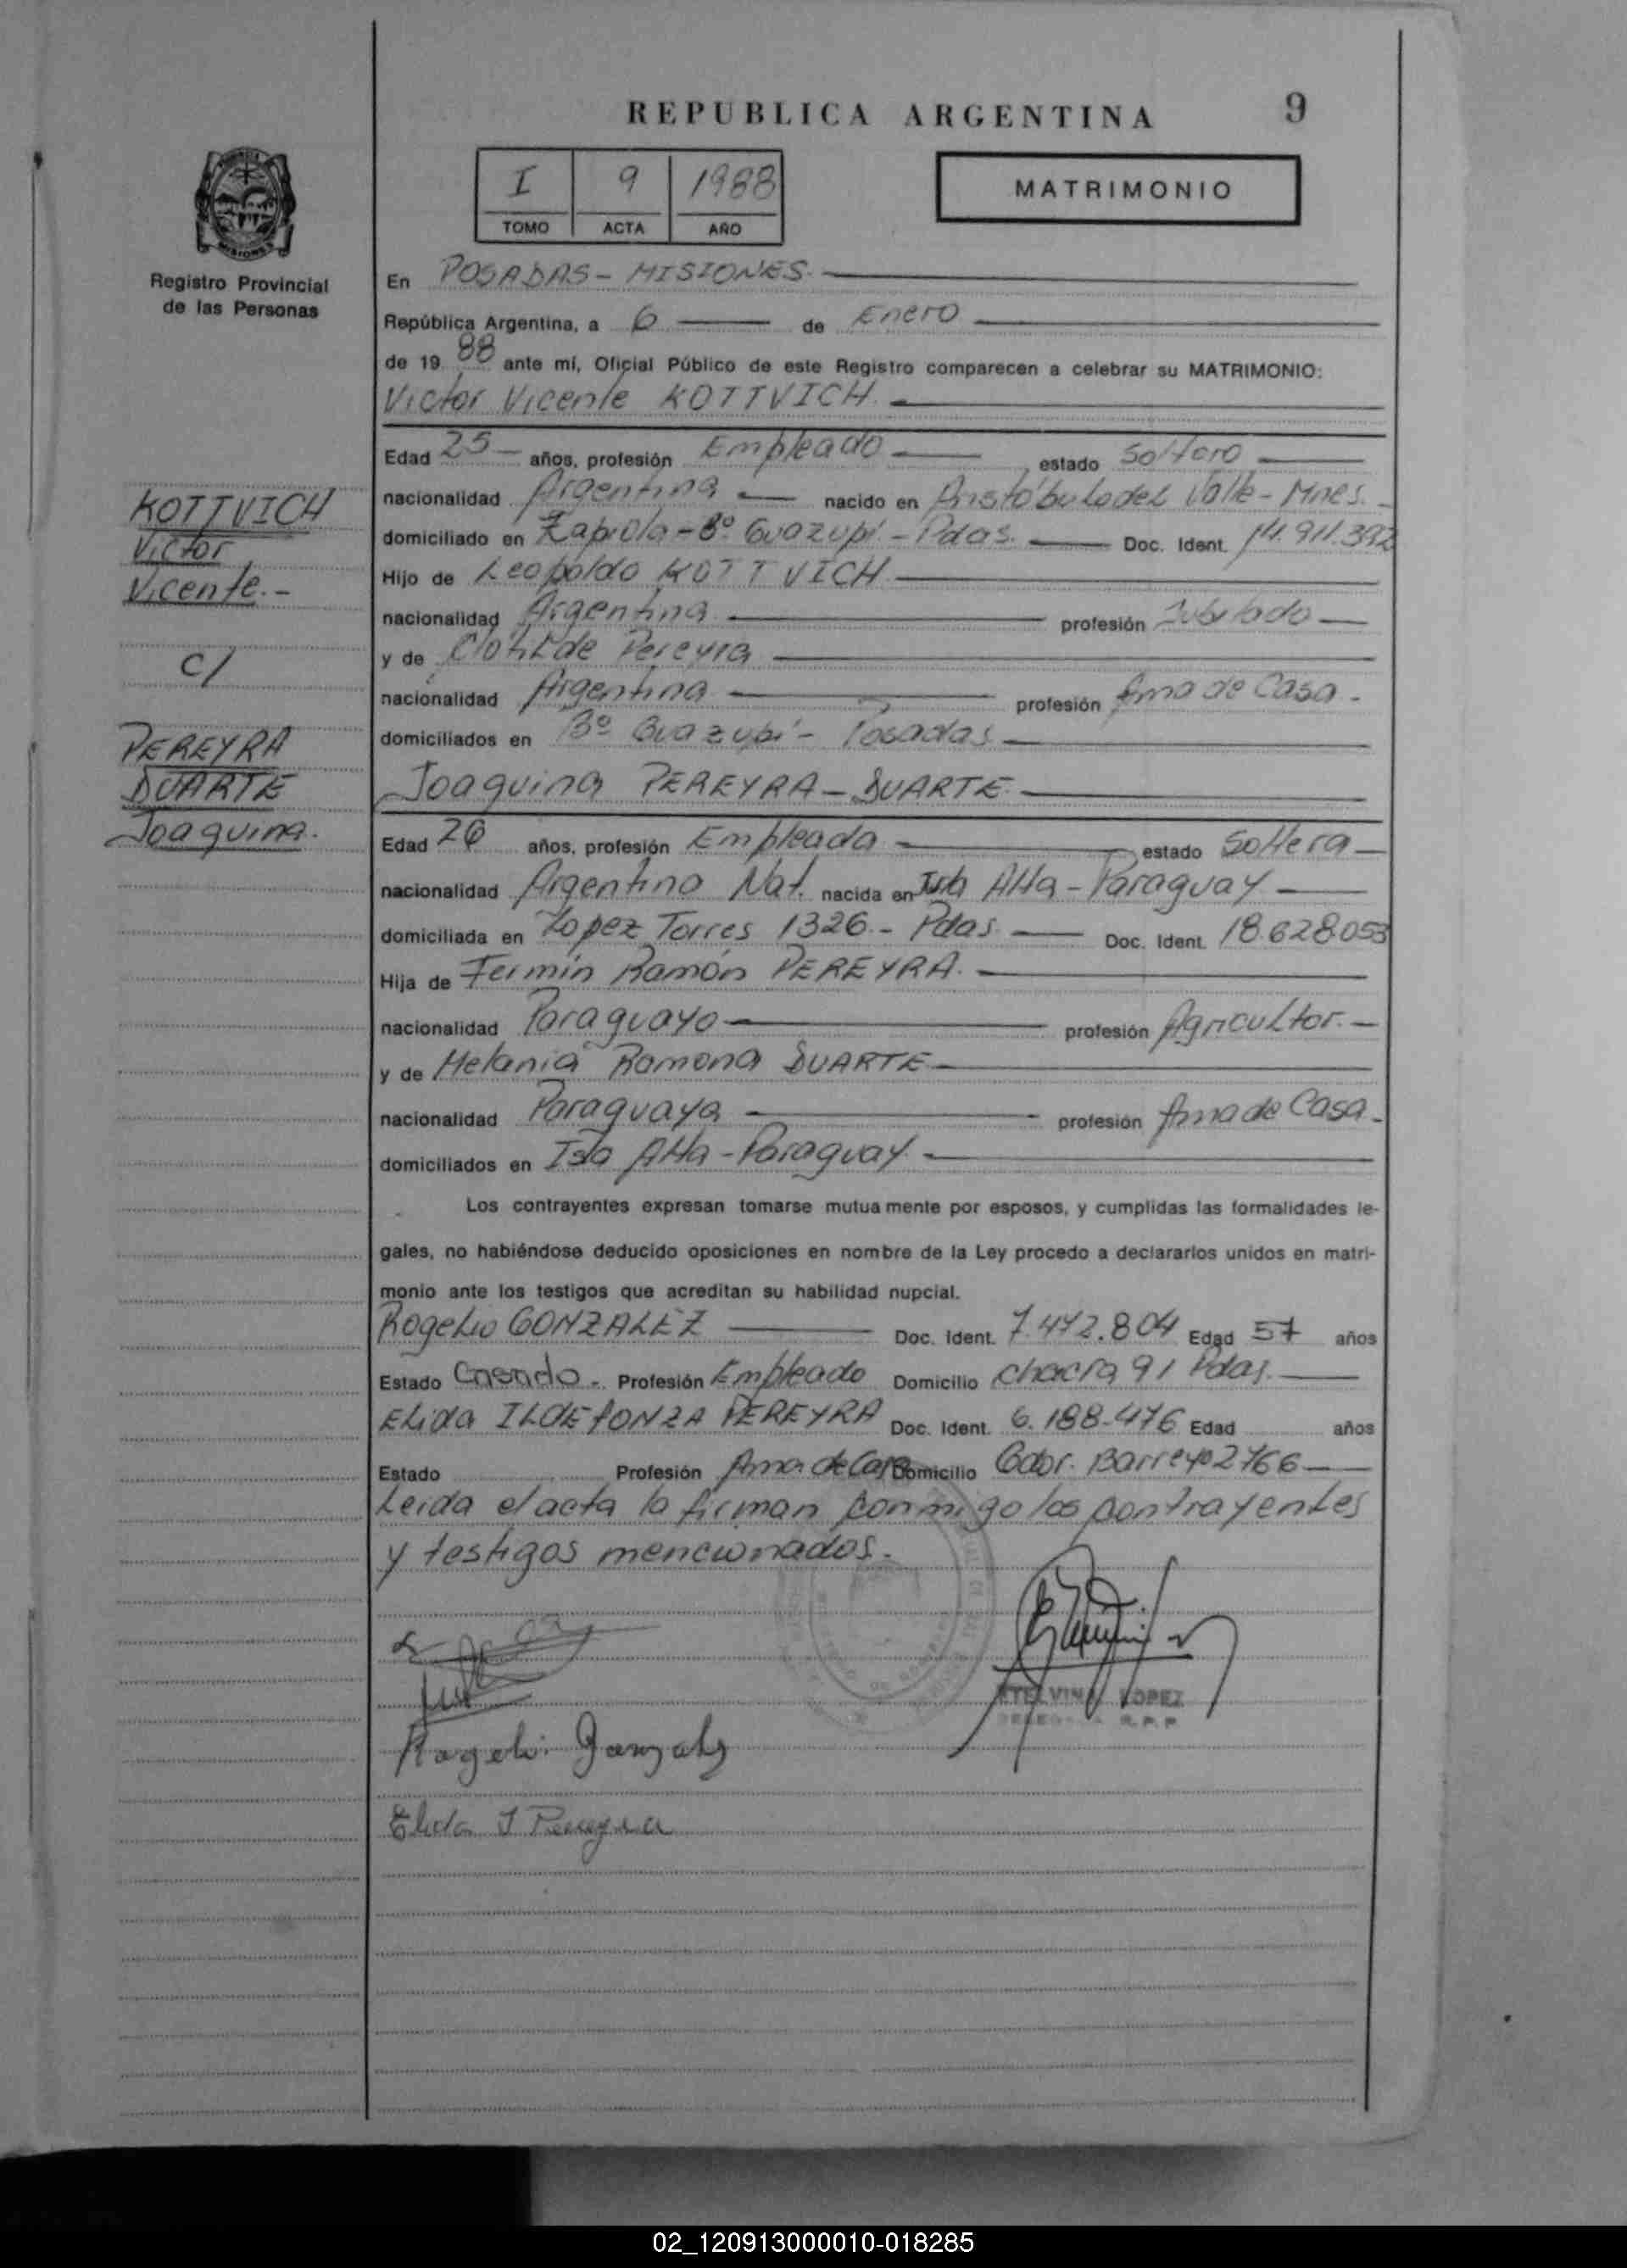 REPUBLICA ARGENTINA
9
I 9 1988
TOMO ACTA AÑO
MATRIMONIO
MISIONES
Registro Provincial
de las Personas
En POSADAS - MISIONES.
República Argentina, a 6 de Enero
de 19 88 ante mí, Oficial Público de este Registro comparecen a celebrar su MATRIMONIO:
Victor Vicente KOTTVICH.
Edad 25 años, profesión Empleado estado Soltero
nacionalidad Argentina nacido en Aristóbulo del Valle - Mnes.
domiciliado en Zapiola - Bº Guazupí - Pdas. Doc. Ident. 14.911.392
Hijo de Leopoldo KOTTVICH
nacionalidad Argentina profesión Jubilado
y de Clotilde Pereyra
nacionalidad Argentina profesión Ama de Casa.
domiciliados en Bº Guazupí - Posadas
Joaquina PEREYRA - DUARTE
Edad 26 años, profesión Empleada estado Soltera
nacionalidad Argentina Nat. nacida en Isla Alta - Paraguay
domiciliada en Lopez Torres 1326 - Pdas Doc. Ident. 18.628.053
Hija de Fermín Ramón PEREYRA.
nacionalidad Paraguayo profesión Agricultor.
y de Melania Ramona DUARTE
nacionalidad Paraguaya profesión Ama de Casa.
domiciliados en Isla Alta - Paraguay
Los contrayentes expresan tomarse mutuamente por esposos, y cumplidas las formalidades le-
gales, no habiéndose deducido oposiciones en nombre de la Ley procedo a declararlos unidos en matri-
monio ante los testigos que acreditan su habilidad nupcial.
Rogelio GONZALEZ Doc. Ident. 7.472.804 Edad 57 años
Estado Casado. Profesión Empleado Domicilio Chacra 91 Pdas.
Elida ILDEFONZA PEREYRA Doc. Ident. 6.188.476 Edad años
Estado Profesión Ama de Casa Domicilio Gdor. Barreyro 2766
Leida el acta la firman conmigo los contrayentes
y testigos mencionados.
ETELVINA LOPEZ
R. P. P.
Rogelio Gonzalez
Elida I Pereyra
KOTTVICH
Victor
Vicente.-
C/
PEREYRA
DUARTE
Joaquina.
02_120913000010-018285